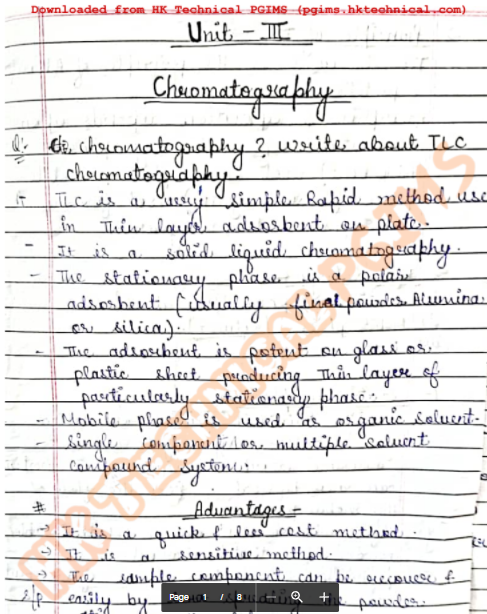 Downloaded from HK Technical PGIMS (pgims.hktechnical.com)
Unit - III
Chromatography
Q:- chromatography ? write about TLC
chromatography.
TLC is a very simple Rapid method use
in Thin layer adsorbent on plate.
- It is a solid liquid chromatography.
- The stationary phase is a polar
adsorbent (usually final powder Alumina
or silica).
- The adsorbent is potent on glass or
plastic sheet producing Thin layer of
particularly stationary phase.
- Mobile phase is used as organic solvent.
- Single component or multiple solvent
compound system.
# Advantages -
→ It is a quick & less cost method.
→ It is a sensitive method.
→ The sample component can be recover &
easily by the powder.
Page 1 / 8
HK TECHNICAL PGIMS